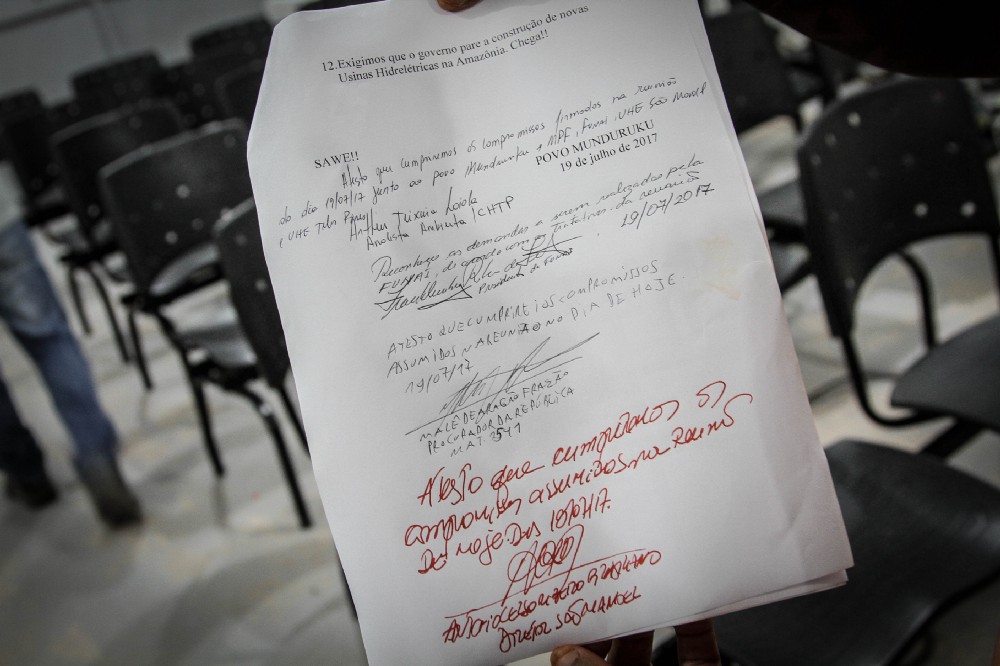 12.Exigimos que o governo pare a construção de novas
Usinas Hidrelétricas na Amazônia. Chega!!
SAWE!!
POVO MUNDURUKU
19 de julho de 2017
Atesto que cumpriremos os compromissos firmados na reunião
do dia 19/07/17 junto ao povo Munduruku e MPF, Funai, UHE São Manoel
(UHE Teles Pires)
Teixeira
Analista Ambienta /CHTP
Reconheço as demandas a serem realizadas pela
FUNAI, de acordo com as da reunião
19/07/2017
Presidente da Funai
ATESTO QUE CUMPRIREI OS COMPROMISSOS
ASSUMIDOS NA REUNIÃO NO DIA DE HOJE.
19/07/17
MALÊ DE ARAGÃO FRAZÃO
PROCURADOR DA REPÚBLICA
MAT. 1541
Atesto que cumpriremos os
compromissos assumidos na reunião
De hoje Dia
Diretor São Manoel